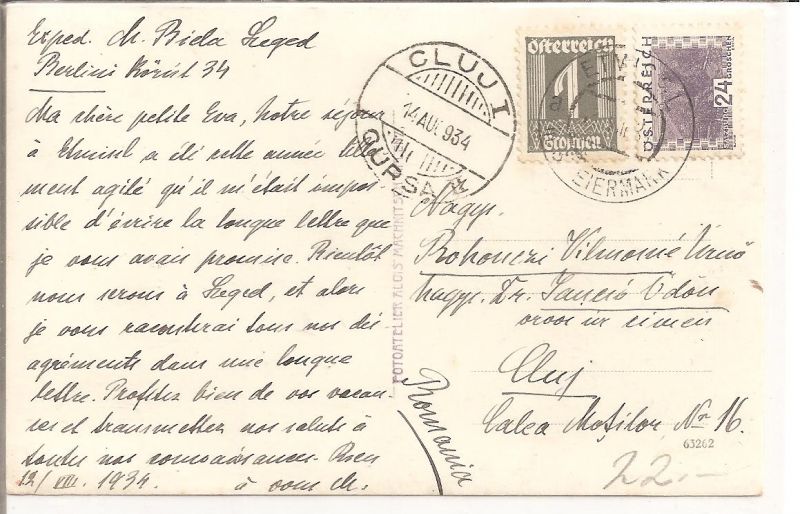 Exped. M. Biela Szeged
Berlini Körút 34
Ma chère petite Eva, Notre séjour
à a été cette année telle
ment agité qu'il m'était impos
sible d'écrire la longue lettre que
je vous avais promise. Bientôt
nous serons à Szeged, et alors
je vous raconterai tous nos dés
agréments dans une longue
lettre. Profitez bien de vos vacan
ces et transmettez nos saluts à
toutes nos connaissances. Bien
12/VIII. 1934. à vous M.
CLUJ 1
14 AUG 934
Österreich
1
Groschen
ÖSTERREICH
24
GROSCHEN
STEIERMARK
FOTOATELIER ALOIS
Nagys.
Vilmosné Úrnő
nagys. Dr. Jancsó Ödön
orvos úr címen
Cluj
Calea Moților, Nr 16.
Romania
63262
22.-